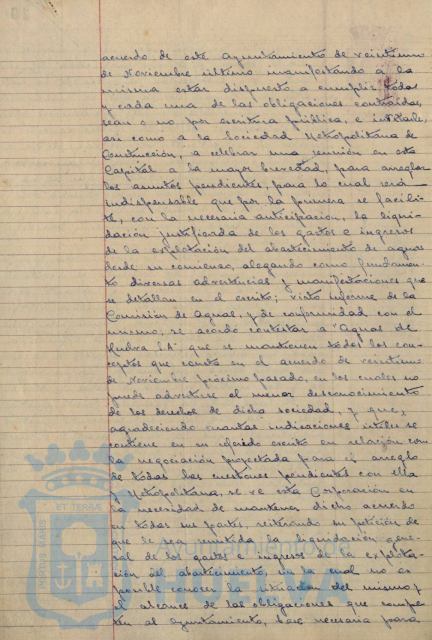 acuerdo de este Ayuntamiento de veintiuno
de Noviembre último manifestando á la
misma estar dispuesto a cumplir todas
y cada una de las obligaciones contraidas,
sean o no por escritura pública, e invitarle,
así como a la Sociedad Metropolitana de
Construcción, a celebrar una reunión en esta
Capital a la mayor brevedad, para arreglar
los asuntos pendientes, para lo cual será
indispensable que por la primera se facili-
te, con la necesaria anticipación, la liqui-
dación justificada de los gastos e ingresos
de la explotación del abastecimiento de aguas
desde su comienzo, alegando como fundamen-
to diversas advertencias y manifestaciones que
se detallan en el escrito; visto informe de la
Comisión de Aguas, y de conformidad con el
mismo, se acordó contestar a "Aguas de
Huelva S.A." que se mantienen todos los con-
ceptos que consta en el acuerdo de veintiuno
de Noviembre próximo pasado, en los cuales no
puede advertirse el menor desconocimiento
de los derechos de dicha sociedad, y que,
agradeciendo cuantas indicaciones útiles se
contiene en su referido escrito en relación con
la negociación proyectada para el arreglo
de todas las cuestiones pendientes con ella
y Metropolitana, se ve esta Corporación en
la necesidad de mantener dicho acuerdo
en todas sus partes, reiterando su petición de
que le sea remitida la liquidación gene-
ral de los gastos e ingresos de la explota-
ción del abastecimiento, sin la cual no es
posible conocer la situación del mismo y
el alcance de las obligaciones que compe-
ten al Ayuntamiento, base necesaria para
PORTUS MARIS
ET TERRAE
HUELVA